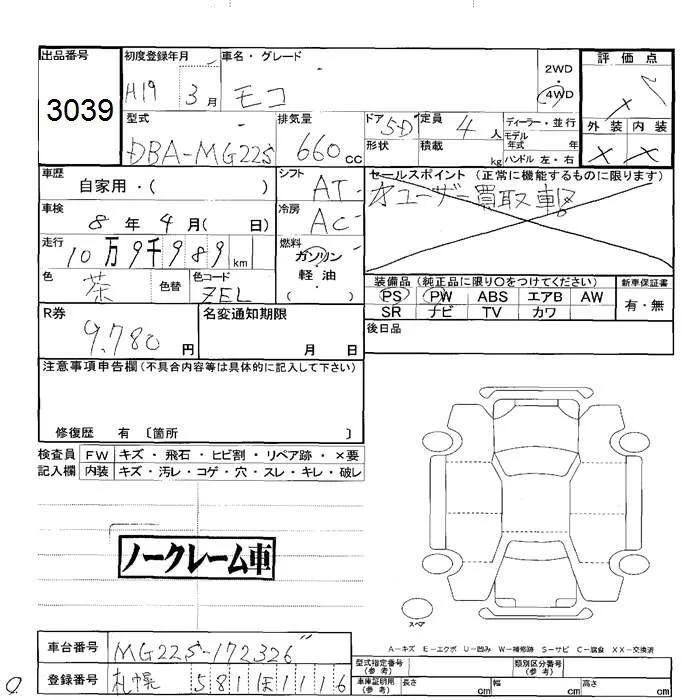 出品番号 3039
初度登録年月 H19 3月
車名・グレード モコ
2WD 4WD
評価点
外装 内装
× ×
型式 DBA-MG22S
排気量 660cc
ドア 形状 5D
定員 4人
積載 kg
ディーラー・並行
モデル年式 年
ハンドル 左・右
車歴 自家用・( )
シフト AT
セールスポイント (正常に機能するものに限ります)
オユーザー買取車
車検 8年4月( 日)
冷房 AC
走行 10万9千989km
燃料 ガソリン 軽油 ( )
色 茶 色替
色コード ZEL
装備品 (純正品に限り〇をつけてください)
PS PW ABS エアB AW
SR ナビ TV カワ
新車保証書 有・無
後日品
R券 9,780円
名変通知期限 月 日
注意事項申告欄(不具合内容等は具体的に記入して下さい)
修復歴 有 〔箇所 〕
検査員記入欄
FW キズ・飛石・ヒビ割・リペア跡・×要
内装 キズ・汚レ・コゲ・穴・スレ・キレ・破レ
ノークレーム車
スペア
A-キズ E-エクボ U-凹み W-補修跡 S-サビ C-腐食 XX-交換済
車台番号 MG22S-172326
登録番号 札幌 581 ほ 1116
型式指定番号(参考)
類別区分番号(参考)
車庫証明用(参考) 長さ cm 幅 cm 高さ cm